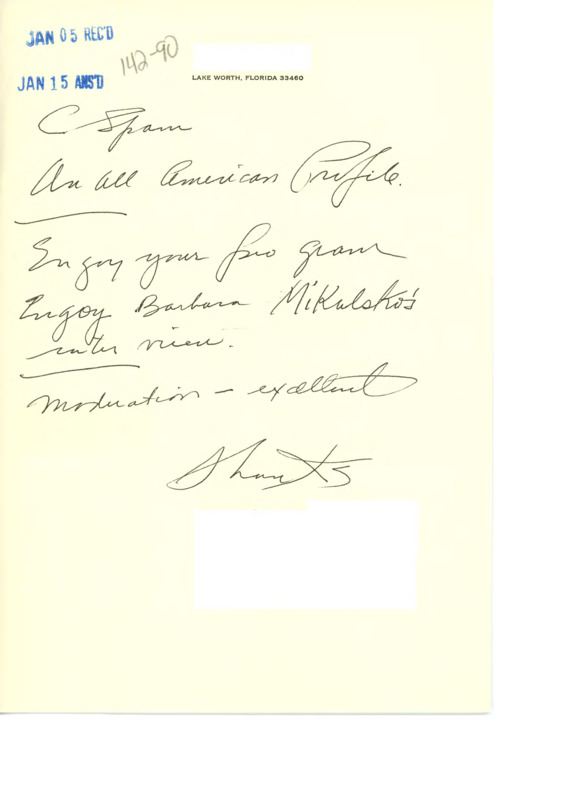 JAN 05 REC'D
142-90
JAN 15 ANS'D
LAKE WORTH, FLORIDA 33460
C Span
An all American Profile.
Engoy your pro gram
Engoy Barbara MiKulsko's
inter view.
Moderation - excellent
Thanks